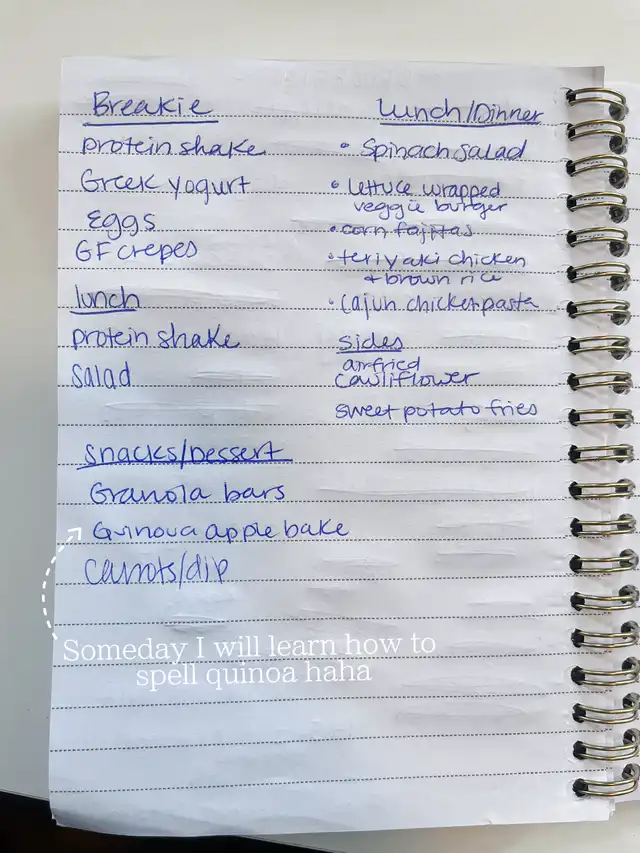 Breakie
protein shake
Greek yogurt
Eggs
GF crepes
lunch
protein shake
salad
snacks/Dessert
Granola bars
Quinoua apple bake
carrots/dip
Lunch/Dinner
• Spinach salad
• lettuce wrapped
veggie burger
• corn fajitas
• teriyaki chicken
+ brown rice
• cajun chicken pasta
sides
airfried
cauliflower
sweet potato fries
Someday I will learn how to
spell quinoa haha